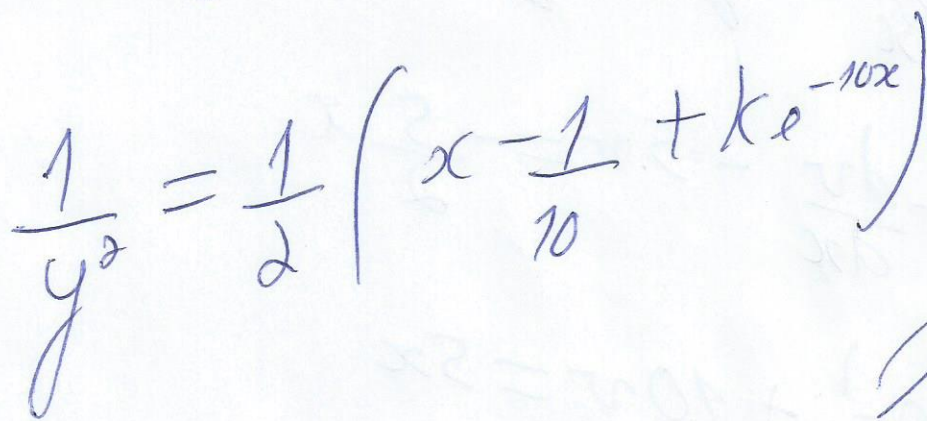 1/y² = 1/2 (x - 1/10 + ke^(-10x))